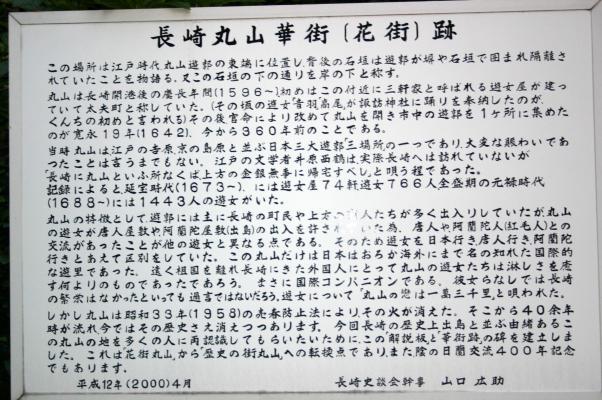 長崎丸山華街(花街)跡
この場所は江戸時代丸山遊郭の東端に位置し、背後の石垣は遊郭が塀や石垣で囲まれ隔離さ
れていたことを物語る。又この石垣の下の通りを岸の下と称す。
丸山は長崎開港後の慶長年間(1596~)初めはこの付近に三軒家と呼ばれる遊女屋が建っ
ていて太夫町と称していた。(その頃の遊女"音羽""高尾"が諏訪神社に踊りを奉納したのが、
くんちの初めと言われる)その後官命により改めて丸山を開き市中の遊郭を1ヶ所に集めた
のが寛永19年(1642)、今から360年前のことである。
当時丸山は江戸の吉原京の島原と並ぶ日本三大遊郭"三場所"の一つであり、大変な賑わいであ
ったことは言うまでもない。江戸の文学者井原西鶴は実際長崎へは訪れていないが
「長崎に丸山といふ所なくば上方の金銀無事に帰宅すべし」と唄う程であった。
記録によると、延宝時代(1673~)、には遊女屋74軒遊女766人全盛期の元禄時代
(1688~)には1443人の遊女がいた。
丸山の特徴として、遊郭には主に長崎の町民や上方の商人たちが多く出入りしていたが、丸山
の遊女が唐人屋敷や阿蘭陀屋敷(出島)の出入を許されていた為、唐人や阿蘭陀人(紅毛人)との
交流があったことが他の遊女と異なる点である。そのため遊女を日本行き、唐人行き、阿蘭陀
行きとあえて区別をしていた。この丸山だけは日本はおろか海外にまで名の知れた国際的
な遊里であった。遠く祖国を離れ長崎にきた外国人にとって丸山の遊女たちは淋しさを癒
す何よりのものであったであろう。まさに国際コンパニオンである。彼女らなしでは長崎
の繁栄はなかったといっても過言ではないだろう。遊女について「丸山の恋は一万三千里」と唄われた。
しかし丸山は昭和33年(1958)の売春防止法により、その火が消えた。そこから40余年
時が流れ今ではその歴史さえ消えつつあります。今回長崎の歴史上出島と並ぶ由緒あるこ
の丸山の地を多くの人に再認識してもらいたいために、この「解説板」と「華街跡」の碑を建立しま
した。これは「花街丸山」から「歴史の街丸山」への転換点であり、また陰の日蘭交流400年記念
でもあります。
平成12年(2000)4月
長崎史談会幹事 山口広助